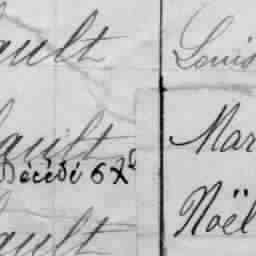 ault Louis
ault Mar
Décédé 6 X
ault Noël